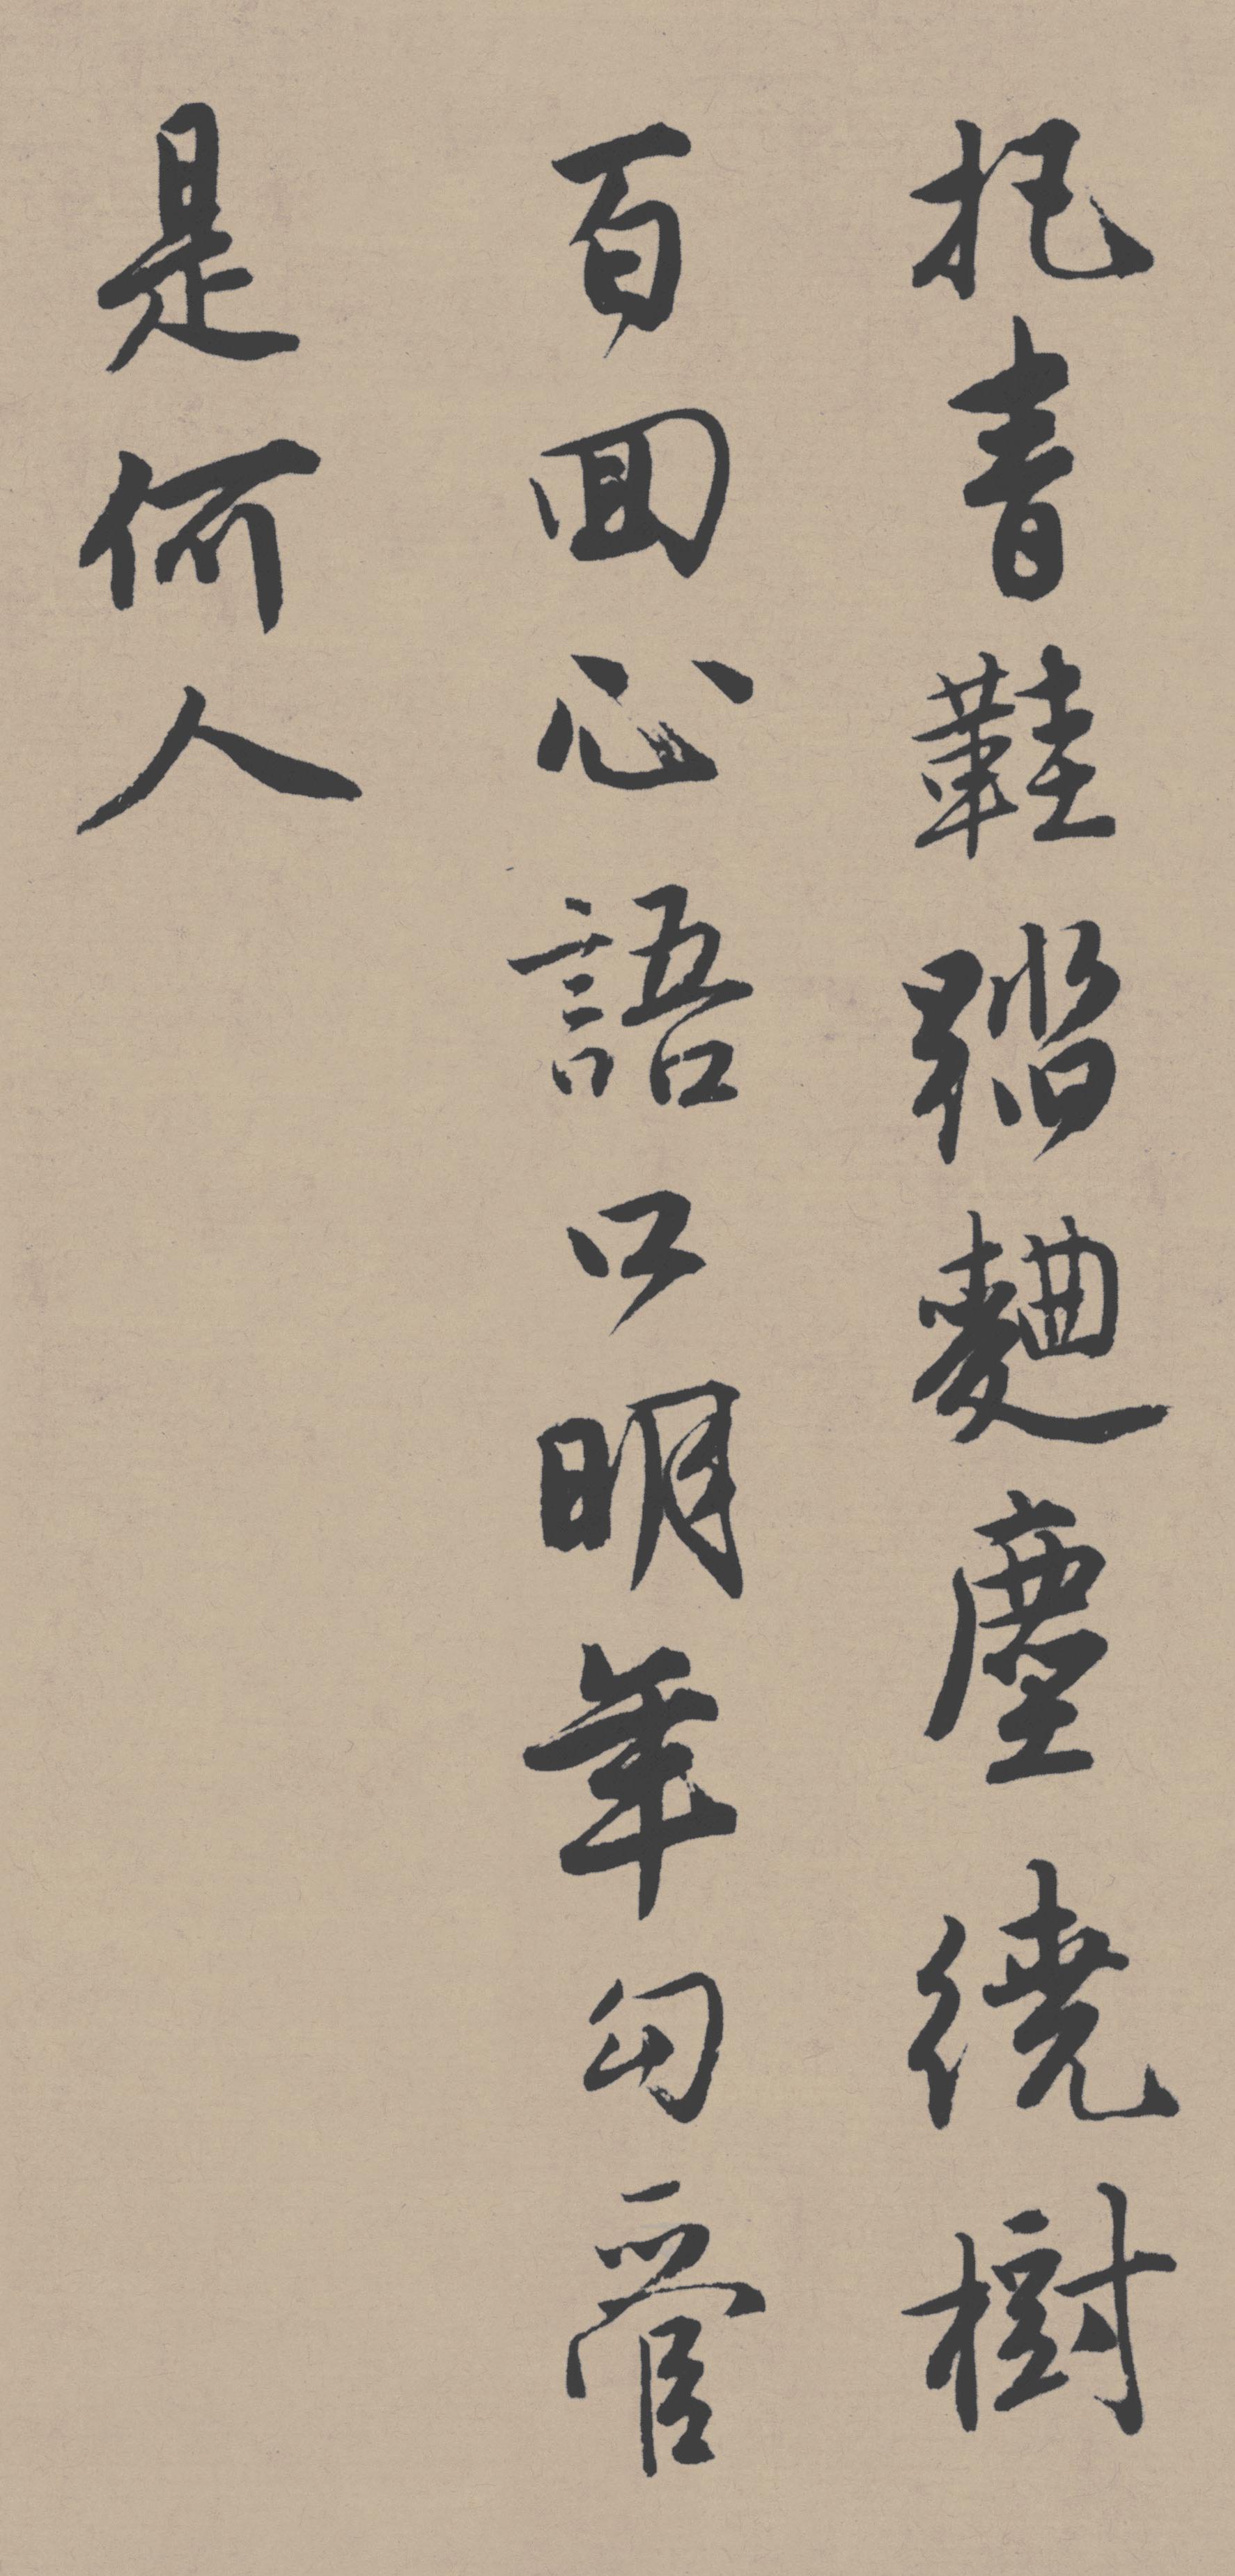 把青鞋踏麴塵繞樹
百回心語口明年勾管
是何人